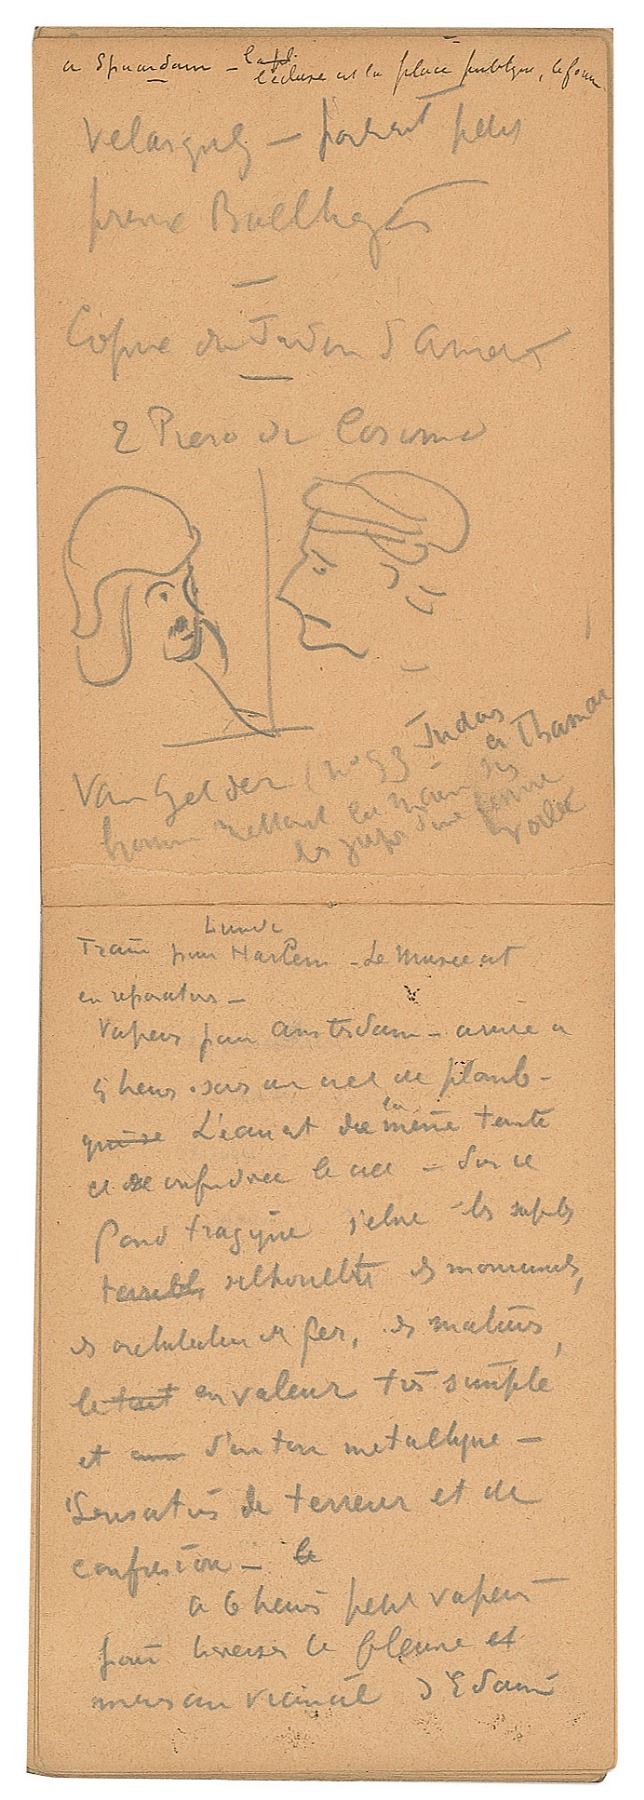 a Spaardam - l'écluse est la place publique, le forum
Velasquez - portrait petit
prince Balthazar
Copie du Jardin d'Amour
2 Piero di Cosimo
Van Gelder (n° 93 Judas et Thamar
homme mettant la main sur
les d'une femme
voilée
Lundi
Train pour Harlem - Le Musée est
en réparations -
Vapeur pour Amsterdam - arrivée a
5 heures. sous un ciel de plomb -
L'eau est de la même teinte
et se confond avec le ciel - Sur ce
fond tragique s'élève les superbes
terribles silhouettes des monuments,
des architectures de fer, des matures,
le tout en valeur très simple
et d'un ton metallique -
Sensations de terreur et de
confusion - le
a 6 heures petit vapeur
pour traverser le fleuve et
mener au vicinal d'Edam